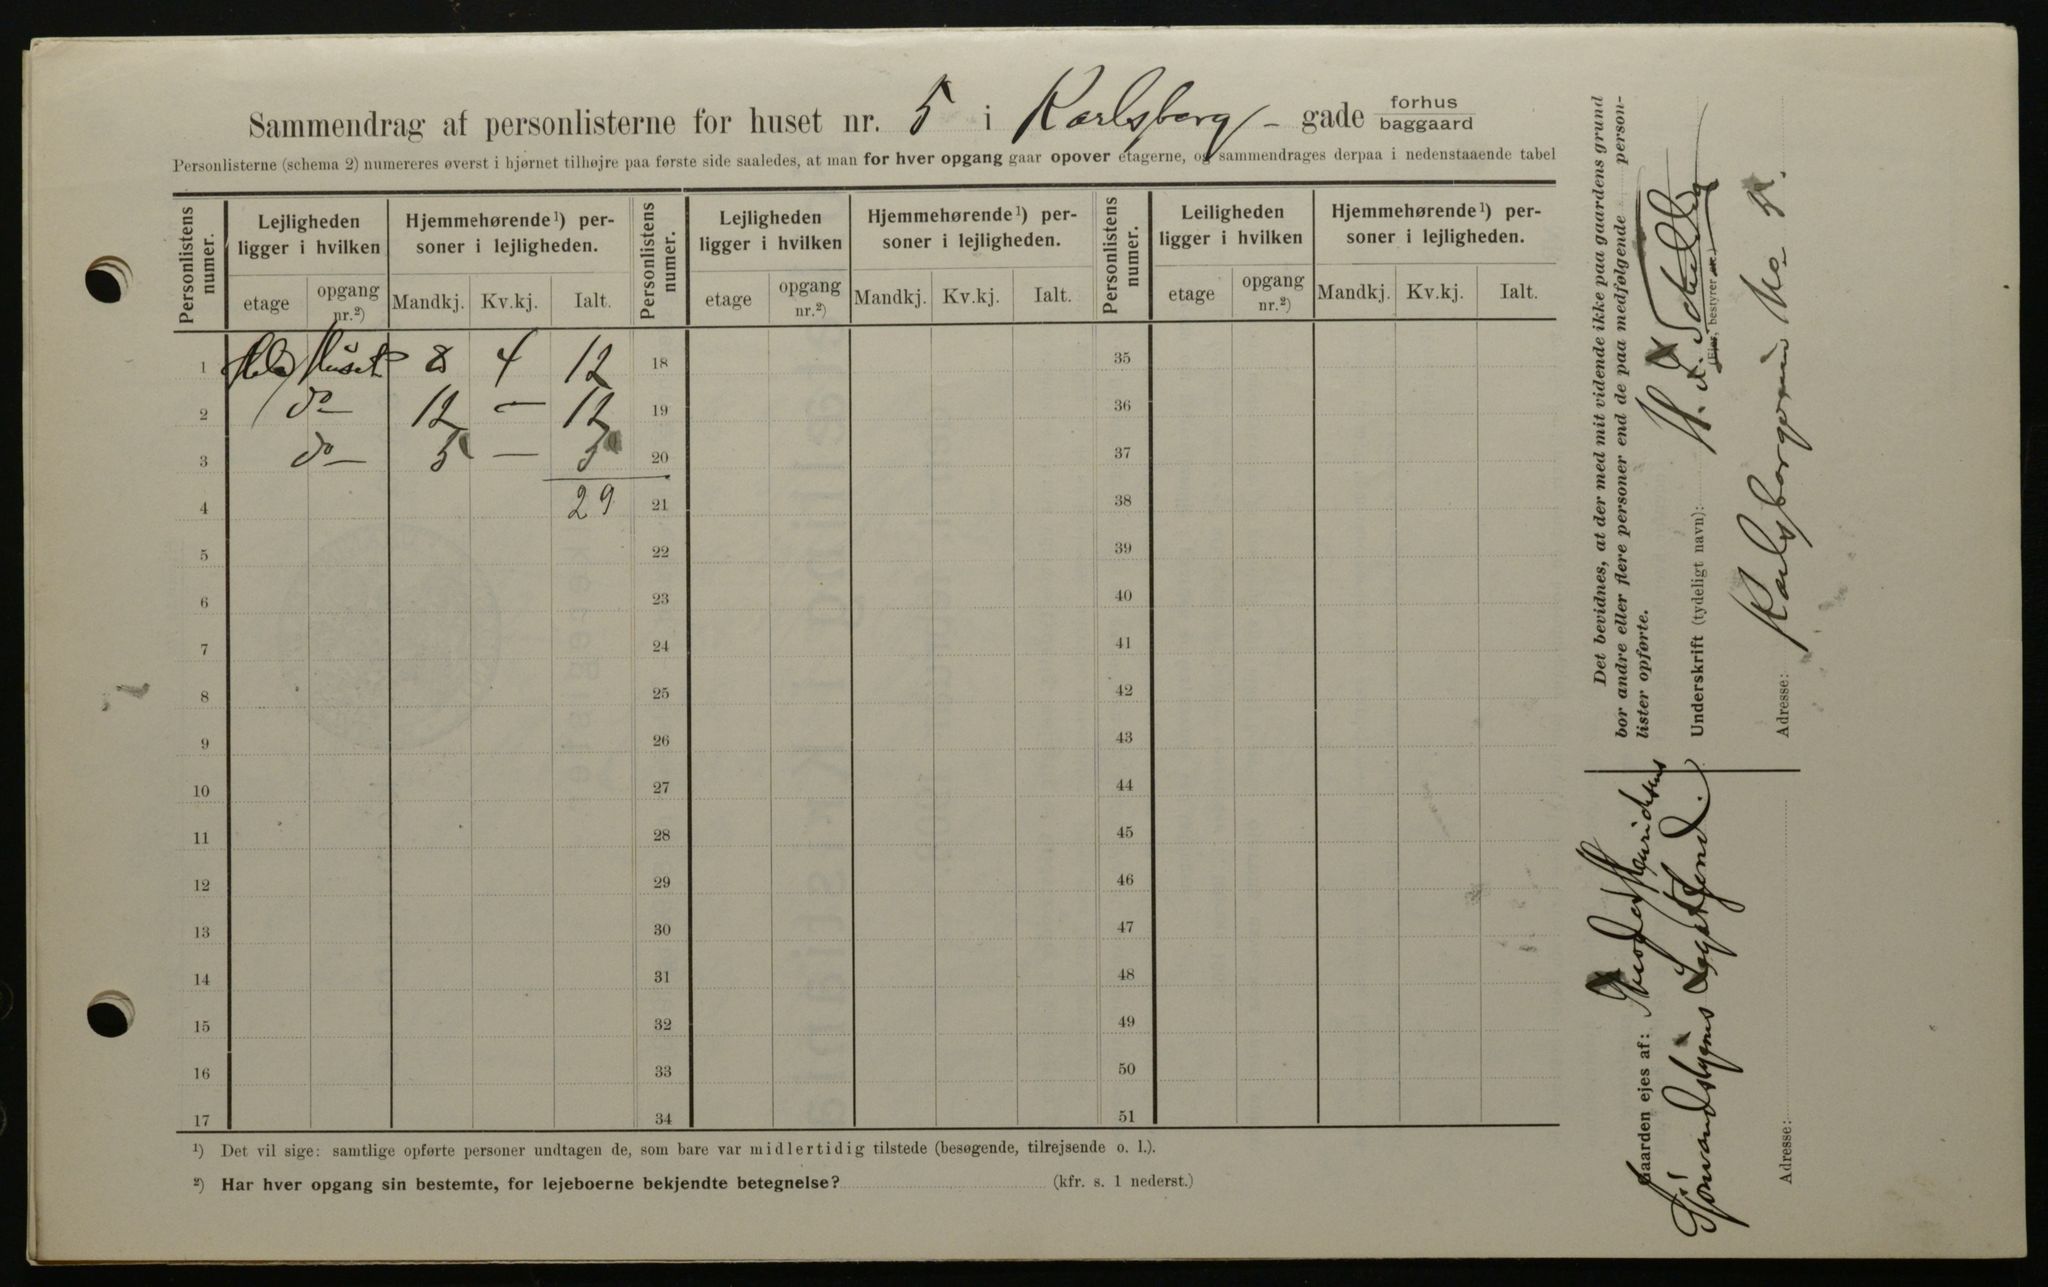 Sammendrag af personlisterne for huset nr. 5 i Karlsborg - gade forhus baggaard
Personlisterne (schema 2) numereres øverst i hjørnet tilhøjre paa første side saaledes, at man for hver opgang gaar opover etagerne, og sammendrages derpaa i nedenstaaende tabel
Personlistens numer. Lejligheden ligger i hvilken Hjemmehørende¹) personer i lejligheden. Personlistens numer. Lejligheden ligger i hvilken Hjemmehørende¹) personer i lejligheden. Personlistens numer. Leiligheden ligger i hvilken Hjemmehørende¹) personer i lejligheden.
etage opgang nr.²) Mandkj. Kv.kj. Ialt. etage opgang nr.²) Mandkj. Kv.kj. Ialt. etage opgang nr.²) Mandkj. Kv.kj. Ialt.
1 Hele Huset 8 4 12 18 35
2 do 12 — 12 19 36
3 do 5 — 5 20 37
4 29 21 38
5 22 39
6 23 40
7 24 41
8 25 42
9 26 43
10 27 44
11 28 45
12 29 46
13 30 47
14 31 48
15 32 49
16 33 50
17 34 51
¹) Det vil sige: samtlige opførte personer undtagen de, som bare var midlertidig tilstede (besøgende, tilrejsende o. l.).
²) Har hver opgang sin bestemte, for lejeboerne bekjendte betegnelse? (kfr. s. 1 nederst.)
Det bevidnes, at der med mit vidende ikke paa gaardens grund
bor andre eller flere personer end de paa medfølgende person-
lister opførte.
Underskrift (tydeligt navn):
(Ejer, bestyrer etc.)
Adresse: Karlsborgveien No 5.
Gaarden ejes af:
Sømandshjems Legatfond.
Adresse: